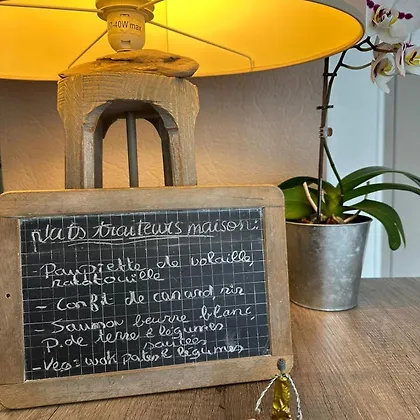 -40W max
Plats traiteurs maison:
- Paupiette de volaille,
ratatouille
- Confit de canard, riz
- Saumon beurre blanc,
P. de terre & légumes
sautés
- Veg: wok pates & légumes